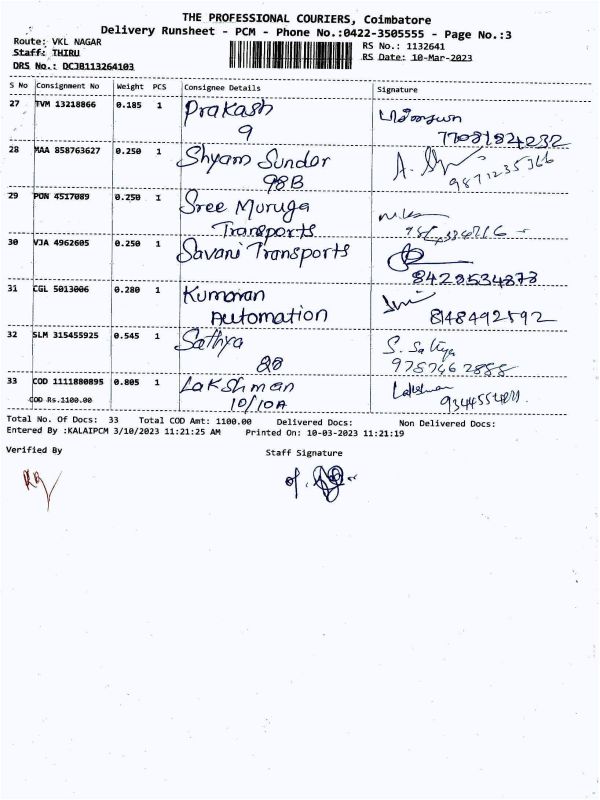 THE PROFESSIONAL COURIERS, Coimbatore
Delivery Runsheet - PCM - Phone No.:0422-3505555 - Page No.:3
Route: VKL NAGAR
RS No.: 1132641
Staff: THIRU
RS Date: 10-Mar-2023
DRS No.: DCJB113264103
S No Consignment No Weight PCS Consignee Details Signature
27 TVM 13218866 0.185 1 Prakash
9
28 MAA 858763627 0.250 1 Shyam Sundar
98B 9871235366
29 PON 4517089 0.250 1 Sree Muruga
Transports
30 VJA 4962605 0.250 1 Savani Transports
8428534873
31 CGL 5013006 0.280 1 Kumaran
Automation 8148492592
32 SLM 315455925 0.545 1 Sathya S. Sathya
28
33 COD 1111880895 0.805 1 Lakshman Lakshman
COD Rs.1100.00 10/10A
Total No. Of Docs: 33 Total COD Amt: 1100.00 Delivered Docs: Non Delivered Docs:
Entered By :KALAIPCM 3/10/2023 11:21:25 AM Printed On: 10-03-2023 11:21:19
Verified By Staff Signature